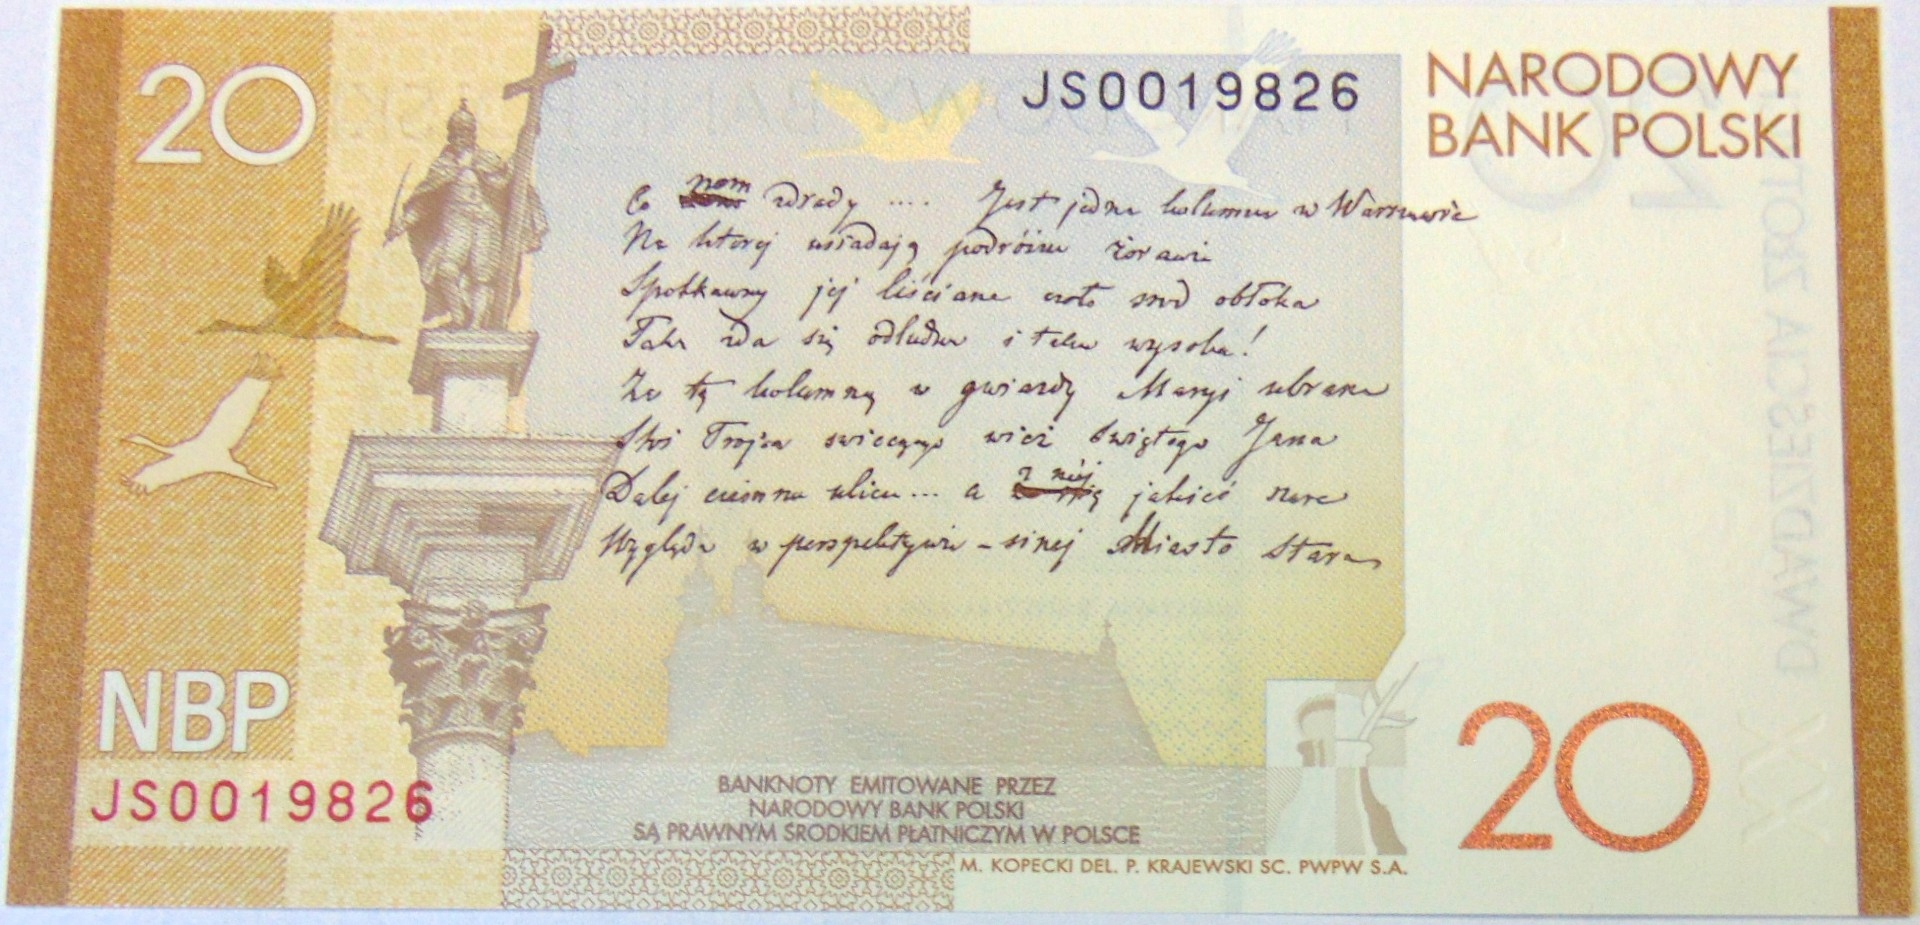 20
JS0019826
NARODOWY
BANK POLSKI
Co nam zdrady .... Jest jedna kolumna w Warszawie
Na ktorej usiadają podróżne żorawie
Spotkawszy jej liściane czoło srod obłoka
Taka zda się odludna i taka wysoka!
Za tą kolumną w gwiazdy Maryi ubrana
Stoi Trojca swiecącyh wież Świętego Jana
Dalej ciemna ulica... a z niej jakieś szare
Wygląda w perspektywie - sinej Miasto Stare
NBP
JS0019826
20
BANKNOTY EMITOWANE PRZEZ
NARODOWY BANK POLSKI
SĄ PRAWNYM ŚRODKIEM PŁATNICZYM W POLSCE
M. KOPECKI DEL. P. KRAJEWSKI SC. PWPW S.A.